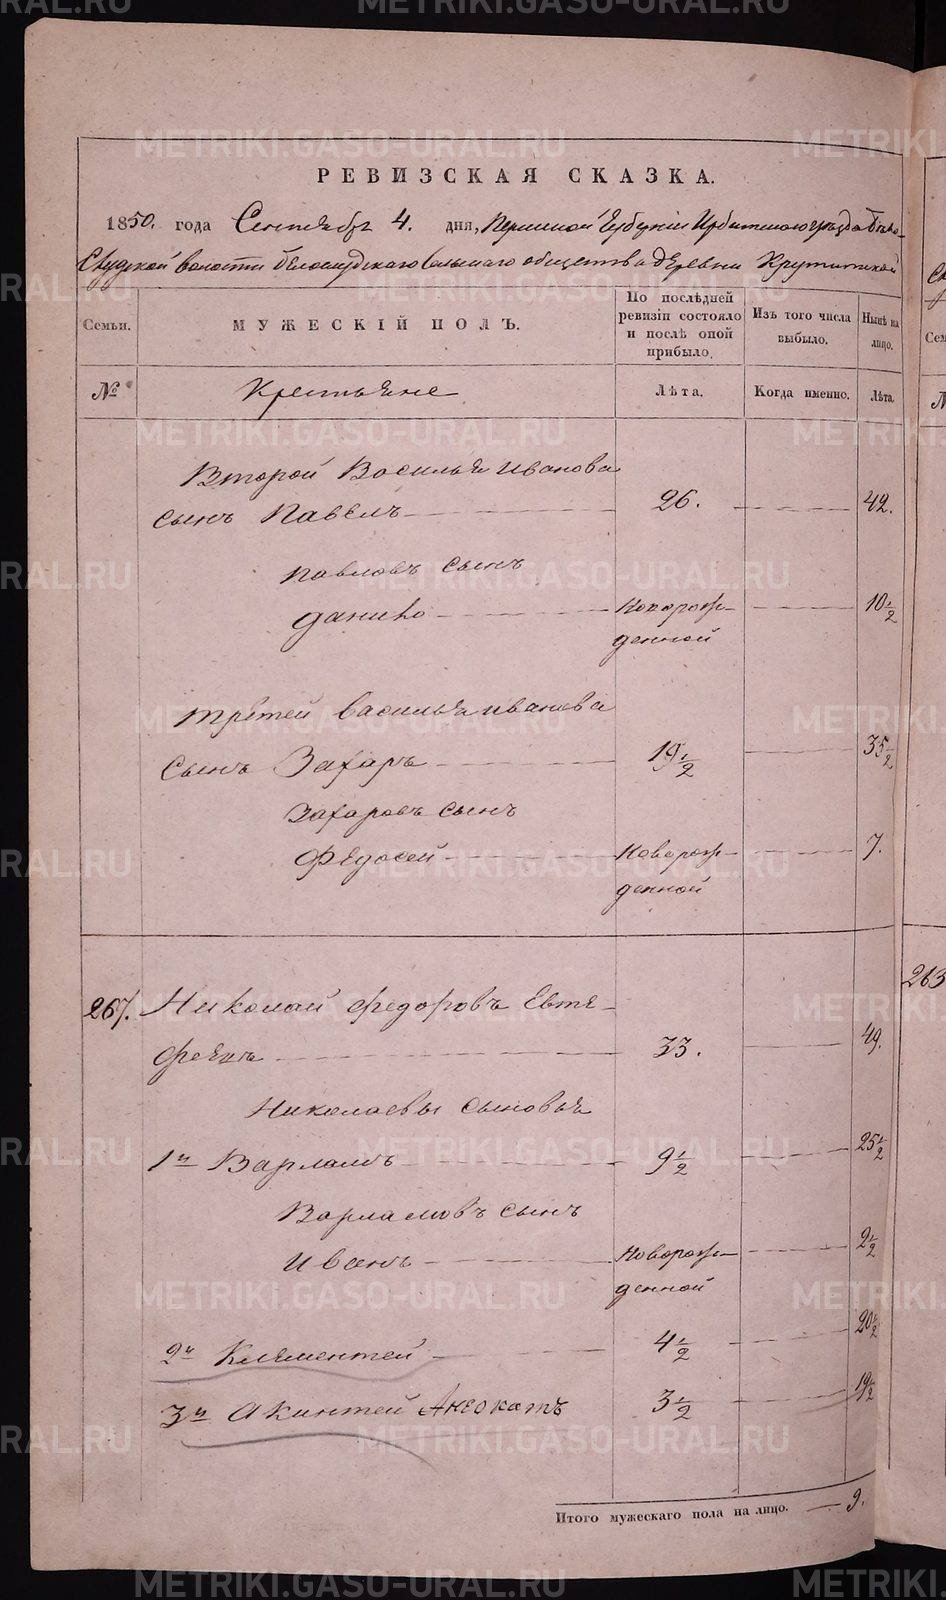 РЕВИЗСКАЯ СКАЗКА.
1850. года Сентября 4. дня, Пермской Губерніи Ирбитскаго уезда Бѣло-
Слудской волости Белослудскаго сельскаго общества деревни
Семьи.
МУЖЕСКІЙ ПОЛЪ.
По послѣдней ревизіи состояло и послѣ оной прибыло.
Изъ того числа выбыло.
Нынѣ на лицо.
№
Крестьяне
Лѣта.
Когда именно.
Лѣта.
Второй Василья Иванова
сынъ Павелъ 26. 42.
Павловъ сынъ
Данило Новорож- 10 1/2
денной
Третей Василья Иванова
сынъ Захаръ 19 1/2 35 1/2
Захаровъ сынъ
Федосей Новорож- 7.
денной
267. Николай Федоровъ Евте-
феевъ 33. 49.
Николаевы сыновья
1й Варламъ 9 1/2 25 1/2
Варламовъ сынъ
Иванъ Новорож- 2 1/2
денной
2й Клементей 4 1/2 20 1/2
3й Акинтей 3 1/2 19 1/2
Итого мужескаго пола на лицо. 9.
263
METRIKI.GASO-URAL.RU